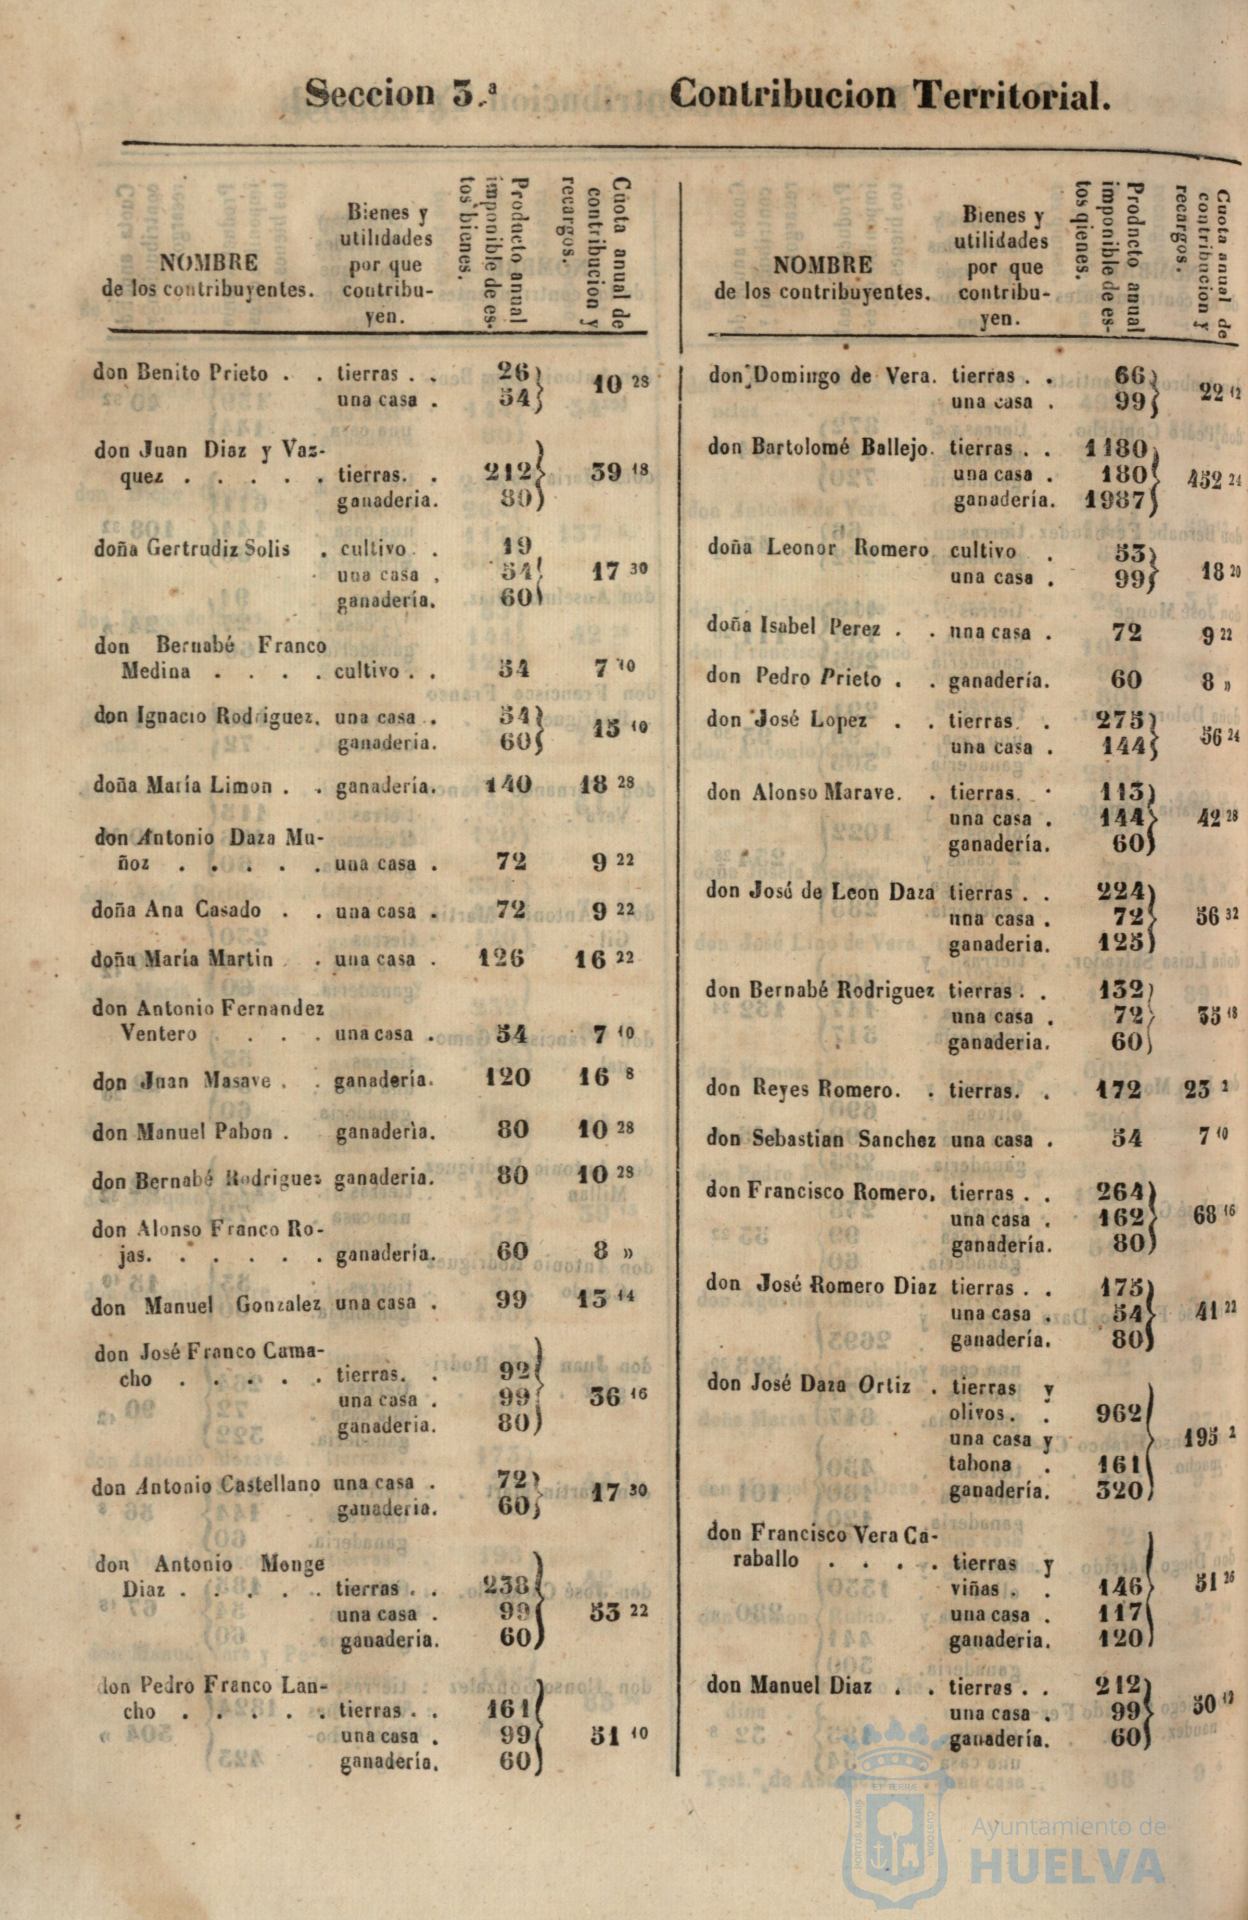 Seccion 3.ª Contribucion Territorial.
NOMBRE
de los contribuyentes.
Bienes y
utilidades
por que
contribu-
yen.
Producto anual
imponible de es-
tos bienes.
Cuota anual de
contribucion y
recargos.
don Benito Prieto . . tierras . . 26
una casa . 54 10 28
don Juan Diaz y Vaz-
quez . . . . . tierras. . 212
ganaderia. 80 39 18
doña Gertrudiz Solis . cultivo . . 19
una casa . 54 17 30
ganadería. 60
don Bernabé Franco
Medina . . . . cultivo . . 54 7 10
don Ignacio Rodriguez. una casa . 54
ganaderia. 60 15 10
doña María Limon . . ganadería. 140 18 28
don Antonio Daza Mu-
ñoz . . . . . una casa . 72 9 22
doña Ana Casado . . una casa . 72 9 22
doña María Martin . una casa . 126 16 22
don Antonio Fernandez
Ventero . . . una casa . 54 7 10
don Juan Masave . . ganadería. 120 16 8
don Manuel Pabon . ganadería. 80 10 28
don Bernabé Rodriguez ganaderia. 80 10 28
don Alonso Franco Ro-
jas. . . . . . ganadería. 60 8 »
don Manuel Gonzalez una casa . 99 13 14
don José Franco Cama-
cho . . . . . tierras. . 92
una casa . 99 36 16
ganaderia. 80
don Antonio Castellano una casa . 72
ganaderia. 60 17 30
don Antonio Monge
Diaz . . . . . tierras . . 238
una casa . 99 53 22
ganaderia. 60
don Pedro Franco Lan-
cho . . . . . tierras . . 161
una casa . 99 51 10
ganadería. 60
NOMBRE
de los contribuyentes.
Bienes y
utilidades
por que
contribu-
yen.
Producto anual
imponible de es-
tos qienes.
Cuota anual de
contribucion y
recargos.
don Domingo de Vera. tierras . . 66
una casa . 99 22 12
don Bartolomé Ballejo. tierras . . 1180
una casa . 180 452 24
ganadería. 1987
doña Leonor Romero cultivo . 53
una casa . 99 18 20
doña Isabel Perez . . una casa . 72 9 22
don Pedro Prieto . . ganadería. 60 8 »
don José Lopez . . tierras . 275
una casa . 144 56 24
don Alonso Marave. . tierras. . 113
una casa . 144 42 28
ganadería. 60
don José de Leon Daza tierras . . 224
una casa . 72 56 32
ganaderia. 125
don Bernabé Rodriguez tierras . . 132
una casa . 72 35 18
ganaderia. 60
don Reyes Romero. . tierras. . 172 23 2
don Sebastian Sanchez una casa . 54 7 10
don Francisco Romero. tierras . . 264
una casa . 162 68 16
ganadería. 80
don José Romero Diaz tierras . . 175
una casa . 54 41 22
ganadería. 80
don José Daza Ortiz . tierras y
olivos. . 962
una casa y 195 2
tahona . 161
ganadería. 320
don Francisco Vera Ca-
raballo . . . . tierras y
viñas . . 146 51 26
una casa . 117
ganaderia. 120
don Manuel Diaz . . tierras . . 212
una casa . 99 50
ganadería. 60
PORTUS MARIS ET TERRÆ CUSTODIA
Ayuntamiento de
HUELVA